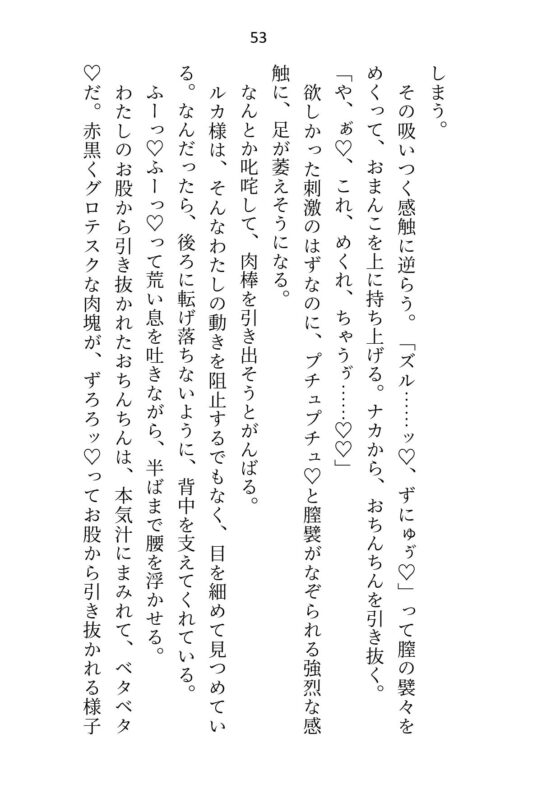 53
しまう。
その吸いつく感触に逆らう。「ズル……ッ♡、ずにゅゔ♡」って膣の襞々を
めくって、おまんこを上に持ち上げる。ナカから、おちんちんを引き抜く。
「や、ぁ゙♡、これ、めくれ、ちゃうゔ……♡♡」
欲しかった刺激のはずなのに、プチュプチュ♡と膣襞がなぞられる強烈な感
触に、足が萎えそうになる。
なんとか叱咤して、肉棒を引き出そうとがんばる。
ルカ様は、そんなわたしの動きを阻止するでもなく、目を細めて見つめてい
る。なんだったら、後ろに転げ落ちないように、背中を支えてくれている。
ふーっ♡ふーっ♡って荒い息を吐きながら、半ばまで腰を浮かせる。
わたしのお股から引き抜かれたおちんちんは、本気汁にまみれて、ベタベタ
♡だ。赤黒くグロテスクな肉塊が、ずろろッ♡ってお股から引き抜かれる様子